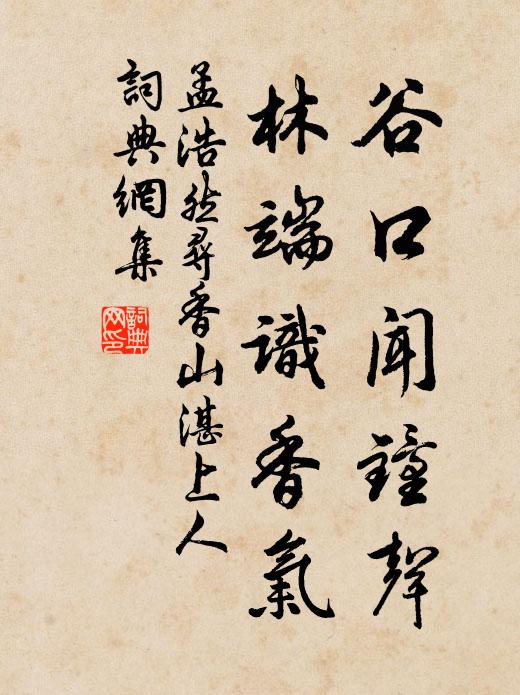 谷口聞鐘聲
林端識香氣
孟浩然尋香山湛上人
詞典網集
詞典网印